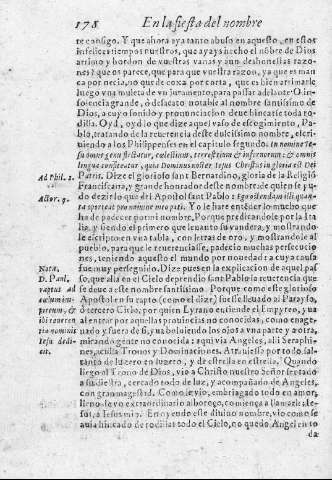 178 En la fiesta del nombre
te consigo. Y que ahora aya tanto abuso en aquesto, en estos
infelices tiempos nuestros, que ayays hecho el nõbre de Dios
arrimo y bordon de vuestras vanas y aun deshonestas razones
que os parece, que para que vuestra razon, ya que es man
ca por necia, no quede coxa por corta, que es bien arrimarle
luego vna muleta de vn juramento, para passar adelante? O in
solencia grande, ò desacato notable al nombre santissimo de
Dios, a cuyo sonido y pronunciacion deue hincarse toda ro
dilla. Oyd, oyd lo que dize aquel vaso de escogimiento, Pa
blo, tratando de la reuerencia deste dulcissimo nombre, escri
uiendo a los Philippenses en el capitulo segundo. In nomine Ie-
su omne genu flectatur, cœlestium, terrestrium & infernorum: & omnis
lingua confiteatur, quia Dominus noster Iesus Christus in gloria est Dei
Ad Phil. 2. Patris. Dize el glorioso sant Bernardino, gloria de la Religiõ
Franciscana, y grande honrador deste nombre, de quien se pu-
do dezir lo que del Apostol sant Pablo: Ego ostendam illi quan-
Actor. 9. ta oporteat pro nomine meo pati. Yo le hare entender lo mucho que
ha de padecer por mi nombre. Porque predicando le por la Ita
lia, y siendo el primero que leuanto su vandera, y mostrando
le escripto en vna tabla, con letras de oro, y mostrandole al
pueblo, para que le reuerenciasse, padecio muchas persecucio
nes, teniendo aquesto el mundo por nouedad: a cuya causa
Nota, fue muy perseguido. Dize pues en la explicacion de aquel pas
D. Paul, so, que alli en el Cielo deprendio sant Pablo la reuerencia que
raptus ad se deue a este nombre santissimo. Porque como este glorioso
Apostol en su rapto (como el dize) fuesse lleuado al Parayso,
ò tercero Cielo, por quien Lyrano entiende el Empyreo, yua
ibi reueren atento por aquellas prouincias no conocidas, como enage-
tia nominis nado y fuera de si, yua boluiendo los ojos a vna parte y a otra,
Iesu didi- mirando gente no conocida: aqui via Angeles, alli Seraphi-
cit. nes, aculla Tronos y Dominaciones. Atrauiessa por todo, sal-
tando de luzero en luzero, y de estrella en estrella. Quando
llego al Trono de Dios, vio a Christo nuestro Señor sentado
a su diestra, cercado todo de luz, y acompañado de Angeles,
con gran magestad. Como le vio, embriagado todo en amor,
lleno de vn extraordinario alborozo, comiença a llamarle: Ie-
sus, a Iesus mio. En oyendo este diuino nombre, vio como se
auia hincado de rodillas todo el Cielo, no quedo Angel en to
da